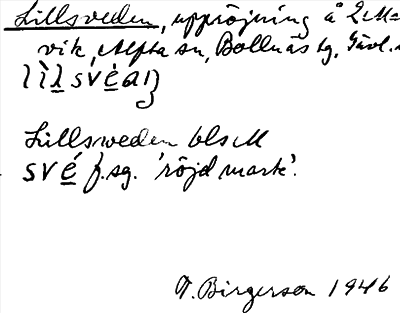 Lillsveden, uppröjning å 2M=
vik, Alfta sn, Bollnäs tg, Gävl.
Lillsveden bls M
své f.sg. 'röjd mark'.
T. Birgerson 1946